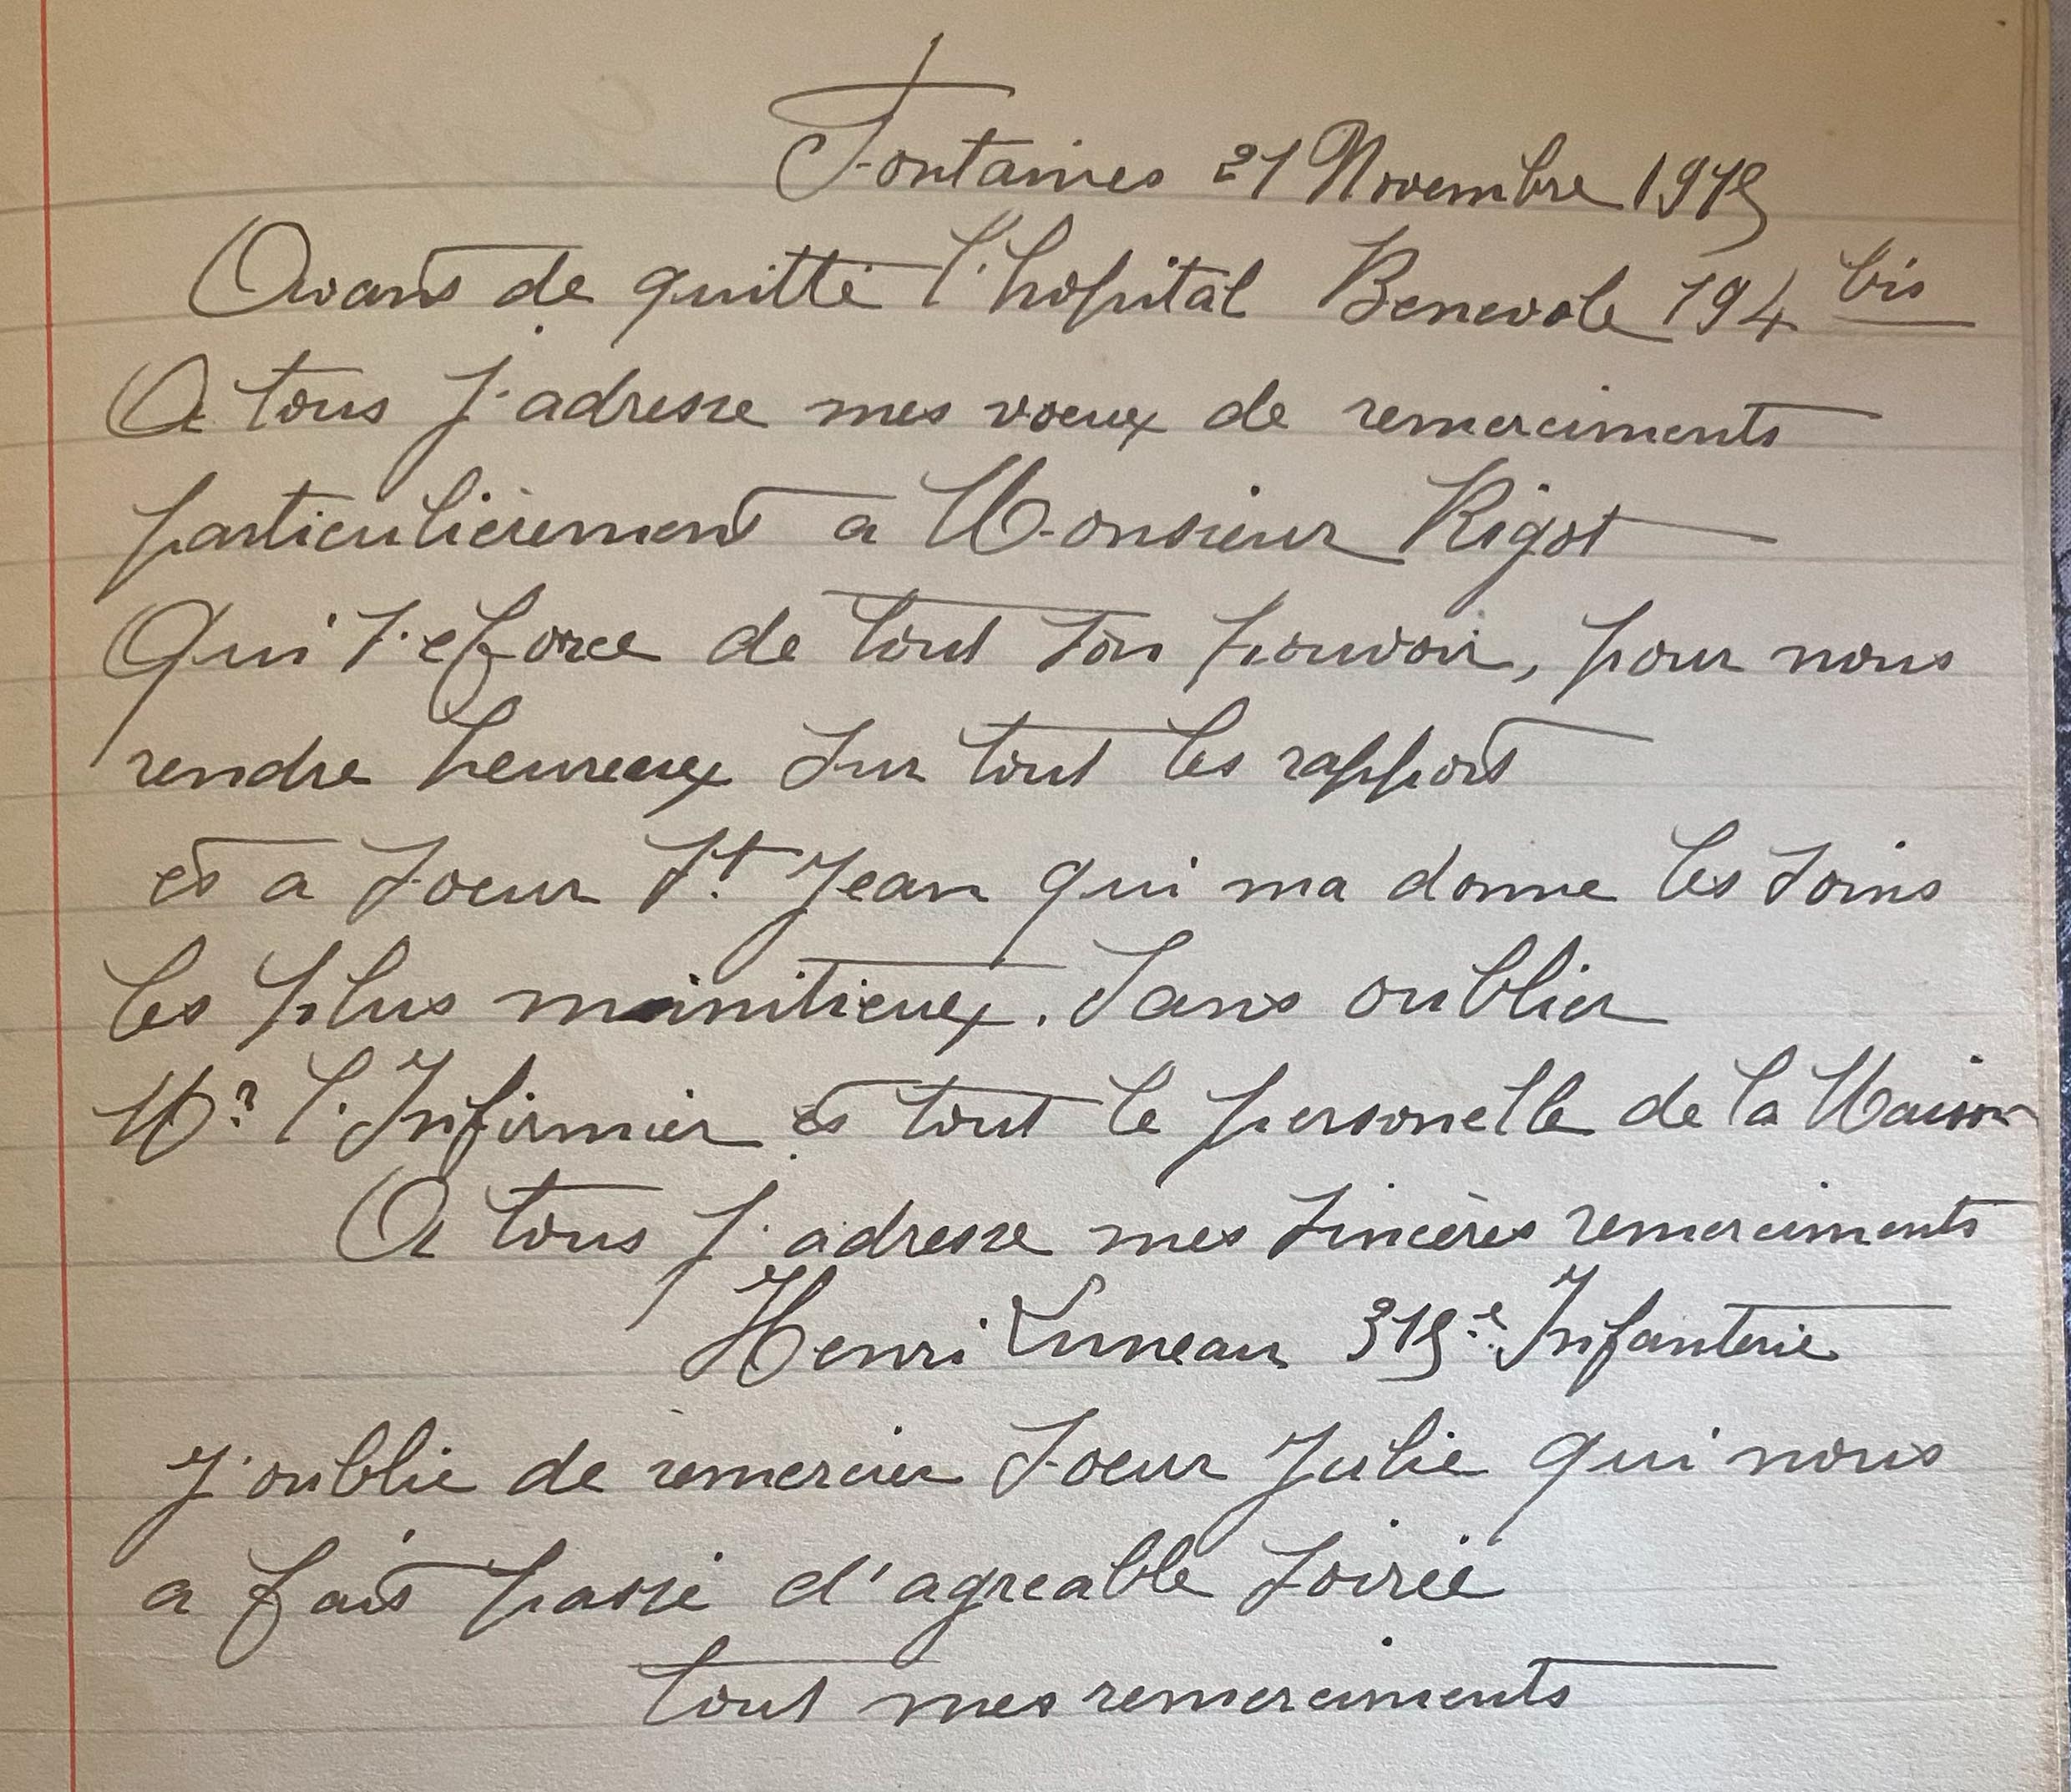 Fontaines 21 Novembre 1915
Avant de quitté l'hopital Benevole 194 bis
A tous j'adresse mes voeux de remerciments
particulièrement a Monsieur Rigot
Qui s'eforce de tout son pouvoir, pour nous
rendre heureux sur tout les rapport
et a Soeur St Jean qui ma donne les soins
les plus minitieux. Sans oublier
Mr l'Infirmier et tout le personelle de la Maison
A tous j'adresse mes sincères remerciments
Henri Luneau 315e Infanterie
J'oublie de remercier Soeur Julie qui nous
a fait passé d'agreable soirée
tout mes remerciments